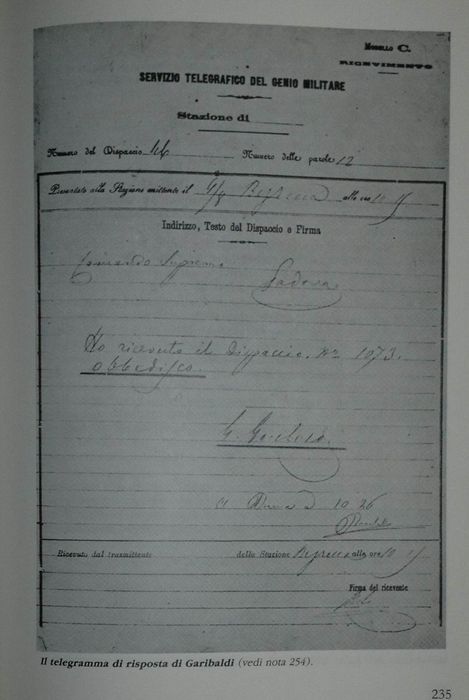 Modello C.
RICEVIMENTO
SERVIZIO TELEGRAFICO DEL GENIO MILITARE
Stazione di
Numero del Dispaccio 46 Numero delle parole 12
Presentato alla Stazione mittente il 9/8 Bezzecca alle ore 10
Indirizzo, Testo del Dispaccio e Firma
Comando Supremo
Padova
Ho ricevuto il Dispaccio Nº 1073.
obbedisco.
G. Garibaldi
Ricevuto dal trasmittente della Stazione Bezzecca alle ore 10
Firma del ricevente
Il telegramma di risposta di Garibaldi (vedi nota 254).
235